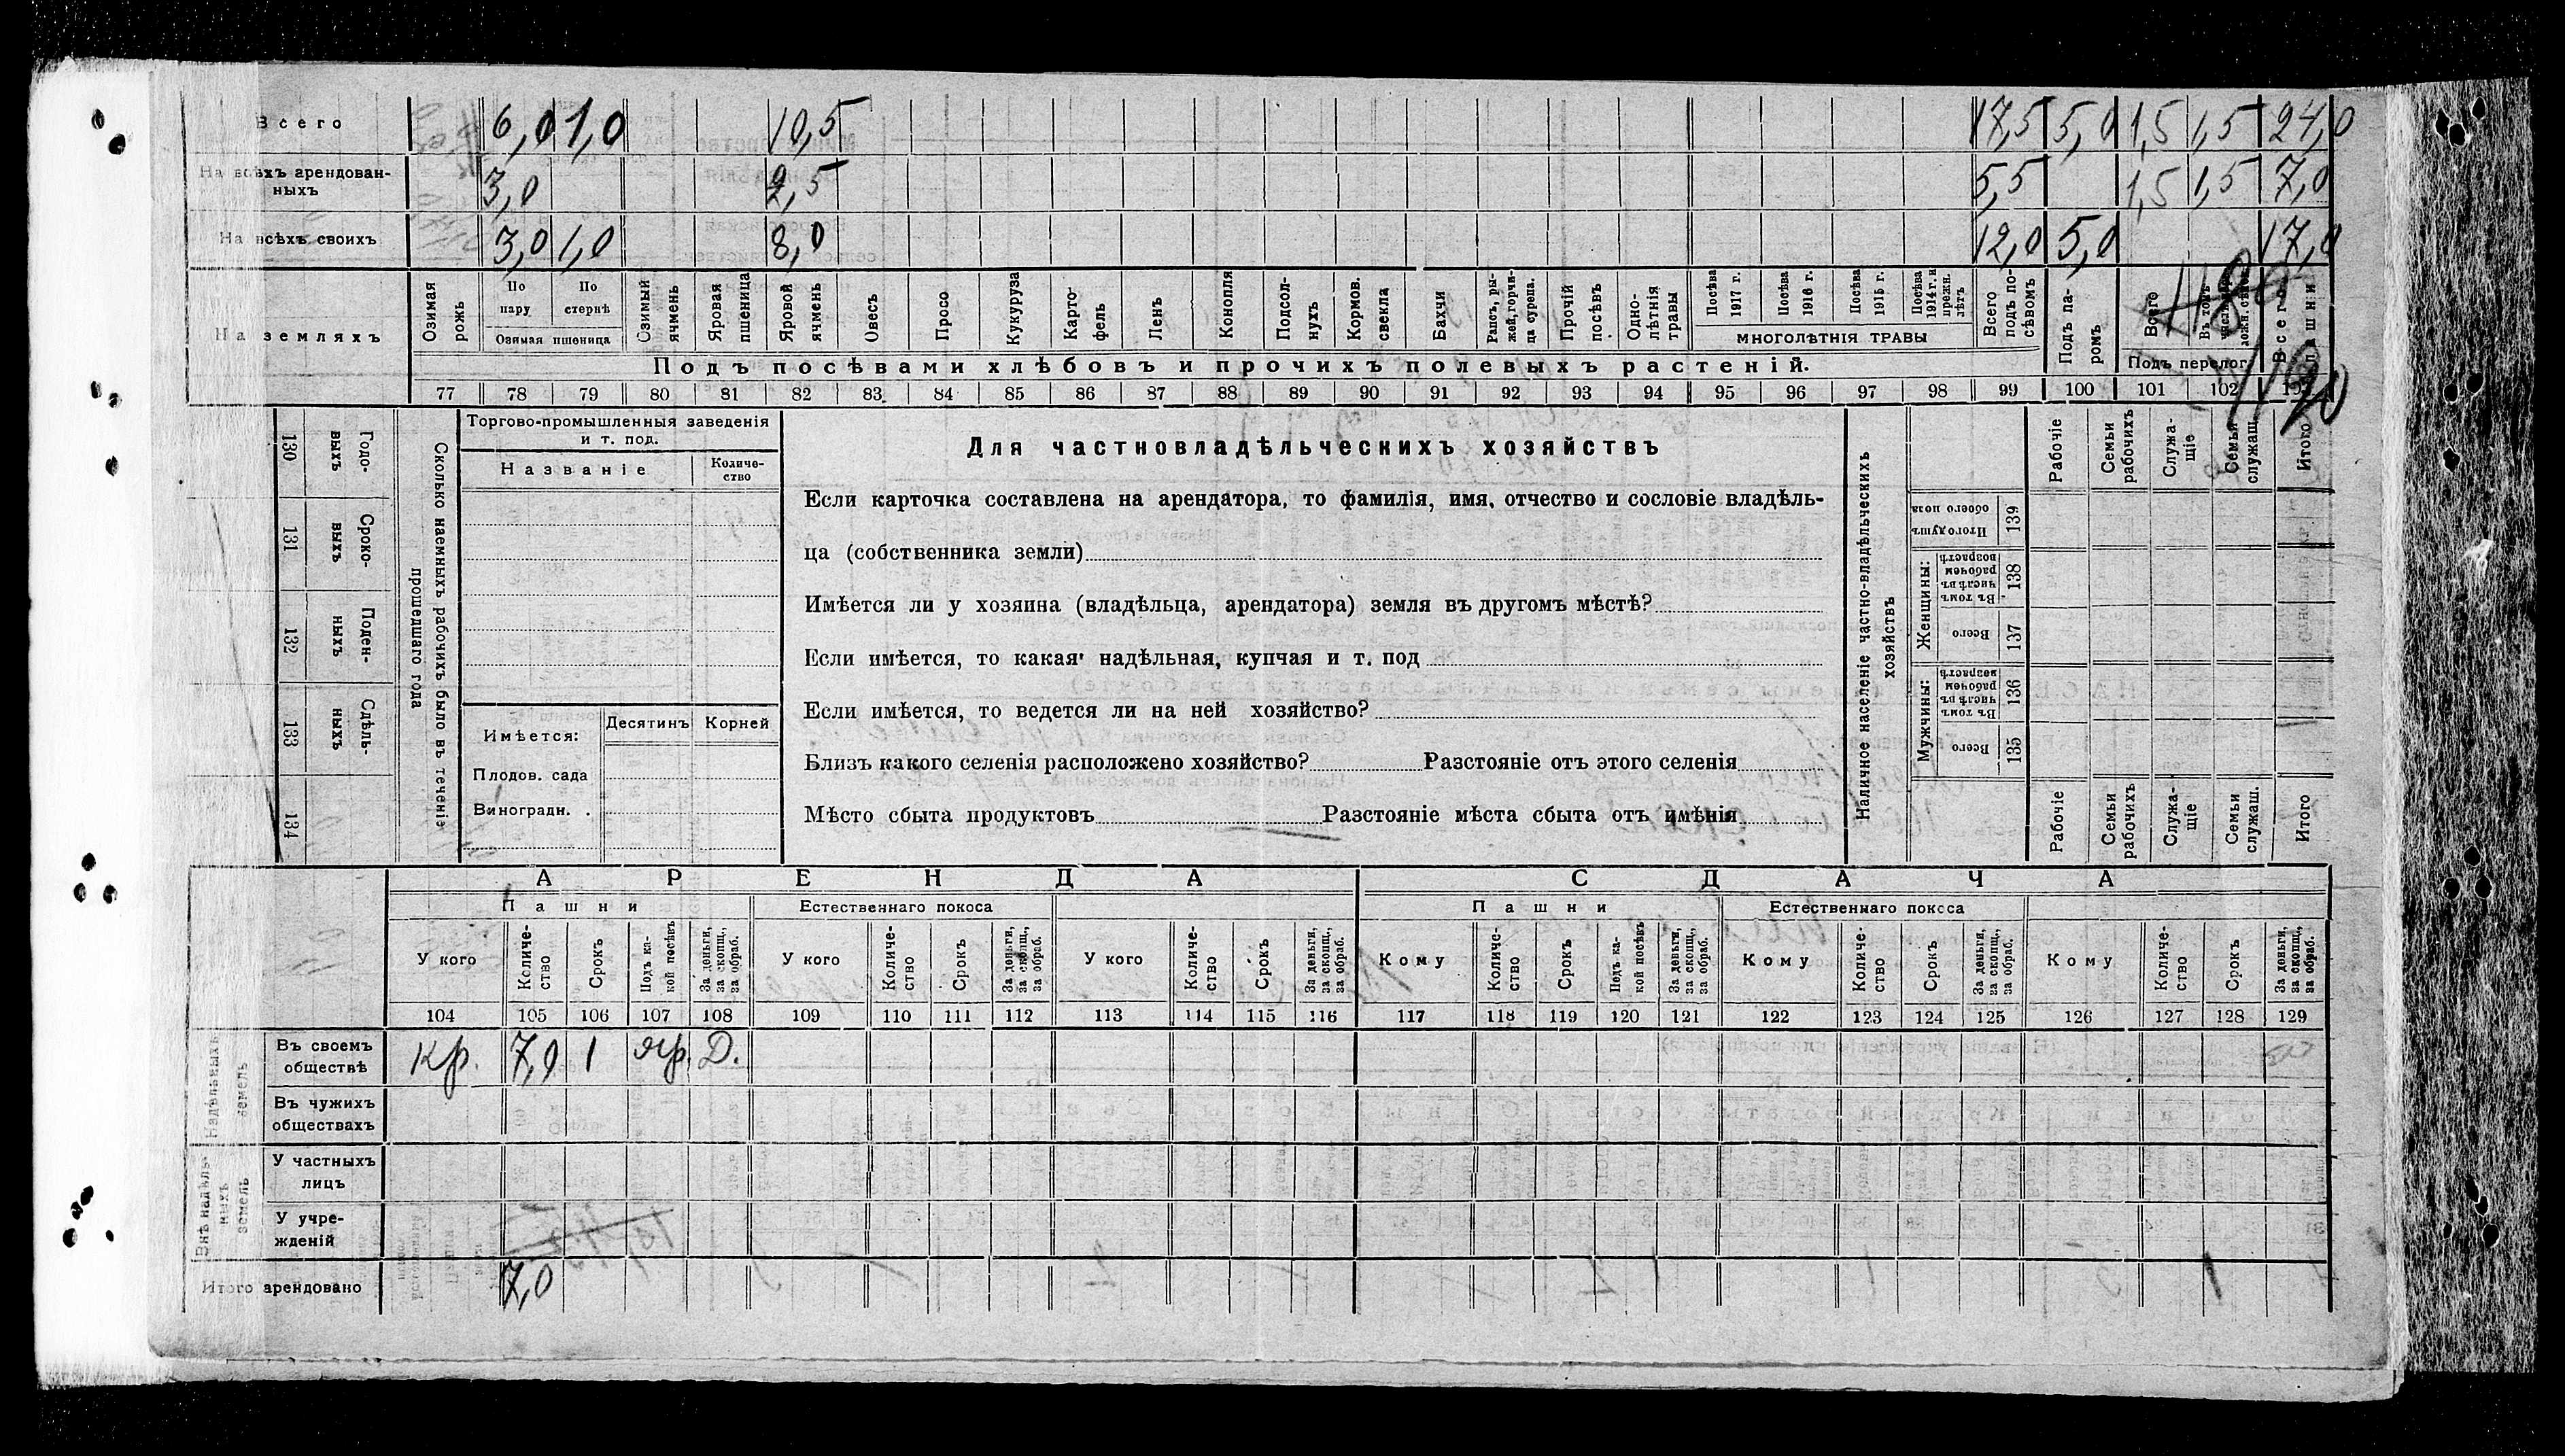 Всего 6,0 1,0 10,5 17,5 5,0 1,5 1,5 24,0
На всѣхъ арендован-
ныхъ 3,0 2,5 5,5 1,5 1,5 7,0
На всѣхъ своихъ 3,0 1,0 8,0 12,0 5,0 17,0
На земляхъ
Озимая рожь
По пару
По стернѣ
Озимая пшеница
Озимый ячмень
Яровая пшеница
Яровой ячмень
Овесъ
Просо
Кукуруза
Карто-
фель
Ленъ
Конопля
Подсол-
нухъ
Кормов. свекла
Бахчи
Рапсъ, ры-
жей, горчи-
ца сурепа.
Прочій посѣвъ
Одно-
лѣтнія травы
Посѣва 1917 г.
Посѣва 1916 г.
Посѣва 1915 г.
Посѣва 1914 г. и прежн. лѣтъ
МНОГОЛѢТНІЯ ТРАВЫ
Всего подъ по-
сѣвомъ
Подъ па-
ромъ
Всего
Подъ перелог.
Всего пашни
Подъ посѣвами хлѣбовъ и прочихъ полевыхъ растеній.
77 78 79 80 81 82 83 84 85 86 87 88 89 90 91 92 93 94 95 96 97 98 99 100 101 102
130 Годо-
выхъ
131 Сроко-
выхъ
132 Поден-
ныхъ
133 Сдѣль-
ныхъ
134
Сколько наемныхъ рабочихъ было въ теченіе
прошедшаго года
Торгово-промышленныя заведенія
и т. под.
Названіе
Количе-
ство
Имѣется:
Десятинъ Корней
Плодов. сада
Виноградн.
Для частновладѣльческихъ хозяйствъ
Если карточка составлена на арендатора, то фамилія, имя, отчество и сословіе владѣль-
ца (собственника земли)
Имѣется ли у хозяина (владѣльца, арендатора) земля въ другомъ мѣстѣ?
Если имѣется, то какая надѣльная, купчая и т. под
Если имѣется, то ведется ли на ней хозяйство?
Близъ какого селенія расположено хозяйство? Разстояніе отъ этого селенія
Мѣсто сбыта продуктовъ Разстояніе мѣста сбыта отъ имѣнія
Наличное населеніе частно-владѣльческихъ
хозяйствъ
Рабочіе
Семьи рабочихъ
Служа-
щіе
Семьи служащ.
Итого
Итого душъ обоего пола 139
Женщины:
Въ томъ числѣ въ рабочем возрастѣ 138
Всего 137
Мужчины:
Въ томъ числѣ въ рабочем возрастѣ 136
Всего 135
Рабочіе
Семьи рабочихъ
Служа-
щіе
Семьи служащ.
Итого
АРЕНДА СДАЧА
Пашни Естественнаго покоса Пашни Естественнаго покоса
У кого
Количе-
ство
Срокъ
Подъ ка-
кой посѣвъ
За деньги, за скопщ., за обраб.
У кого
Количе-
ство
Срокъ
За деньги, за скопщ., за обраб.
У кого
Количе-
ство
Срокъ
За деньги, за скопщ., за обраб.
Кому
Количе-
ство
Срокъ
Подъ ка-
кой посѣвъ
За деньги, за скопщ., за обраб.
Кому
Количе-
ство
Срокъ
За деньги, за скопщ., за обраб.
Кому
Количе-
ство
Срокъ
За деньги, за скопщ., за обраб.
104 105 106 107 108 109 110 111 112 113 114 115 116 117 118 119 120 121 122 123 124 125 126 127 128 129
Надѣльныхъ земель
Въ своемъ
обществѣ кр. 7,0 1 яр. Д.
Въ чужихъ
обществахъ
Внѣ надѣль-
ныхъ земель
У частныхъ
лицъ
У учре-
жденій
Итого арендовано 7,0